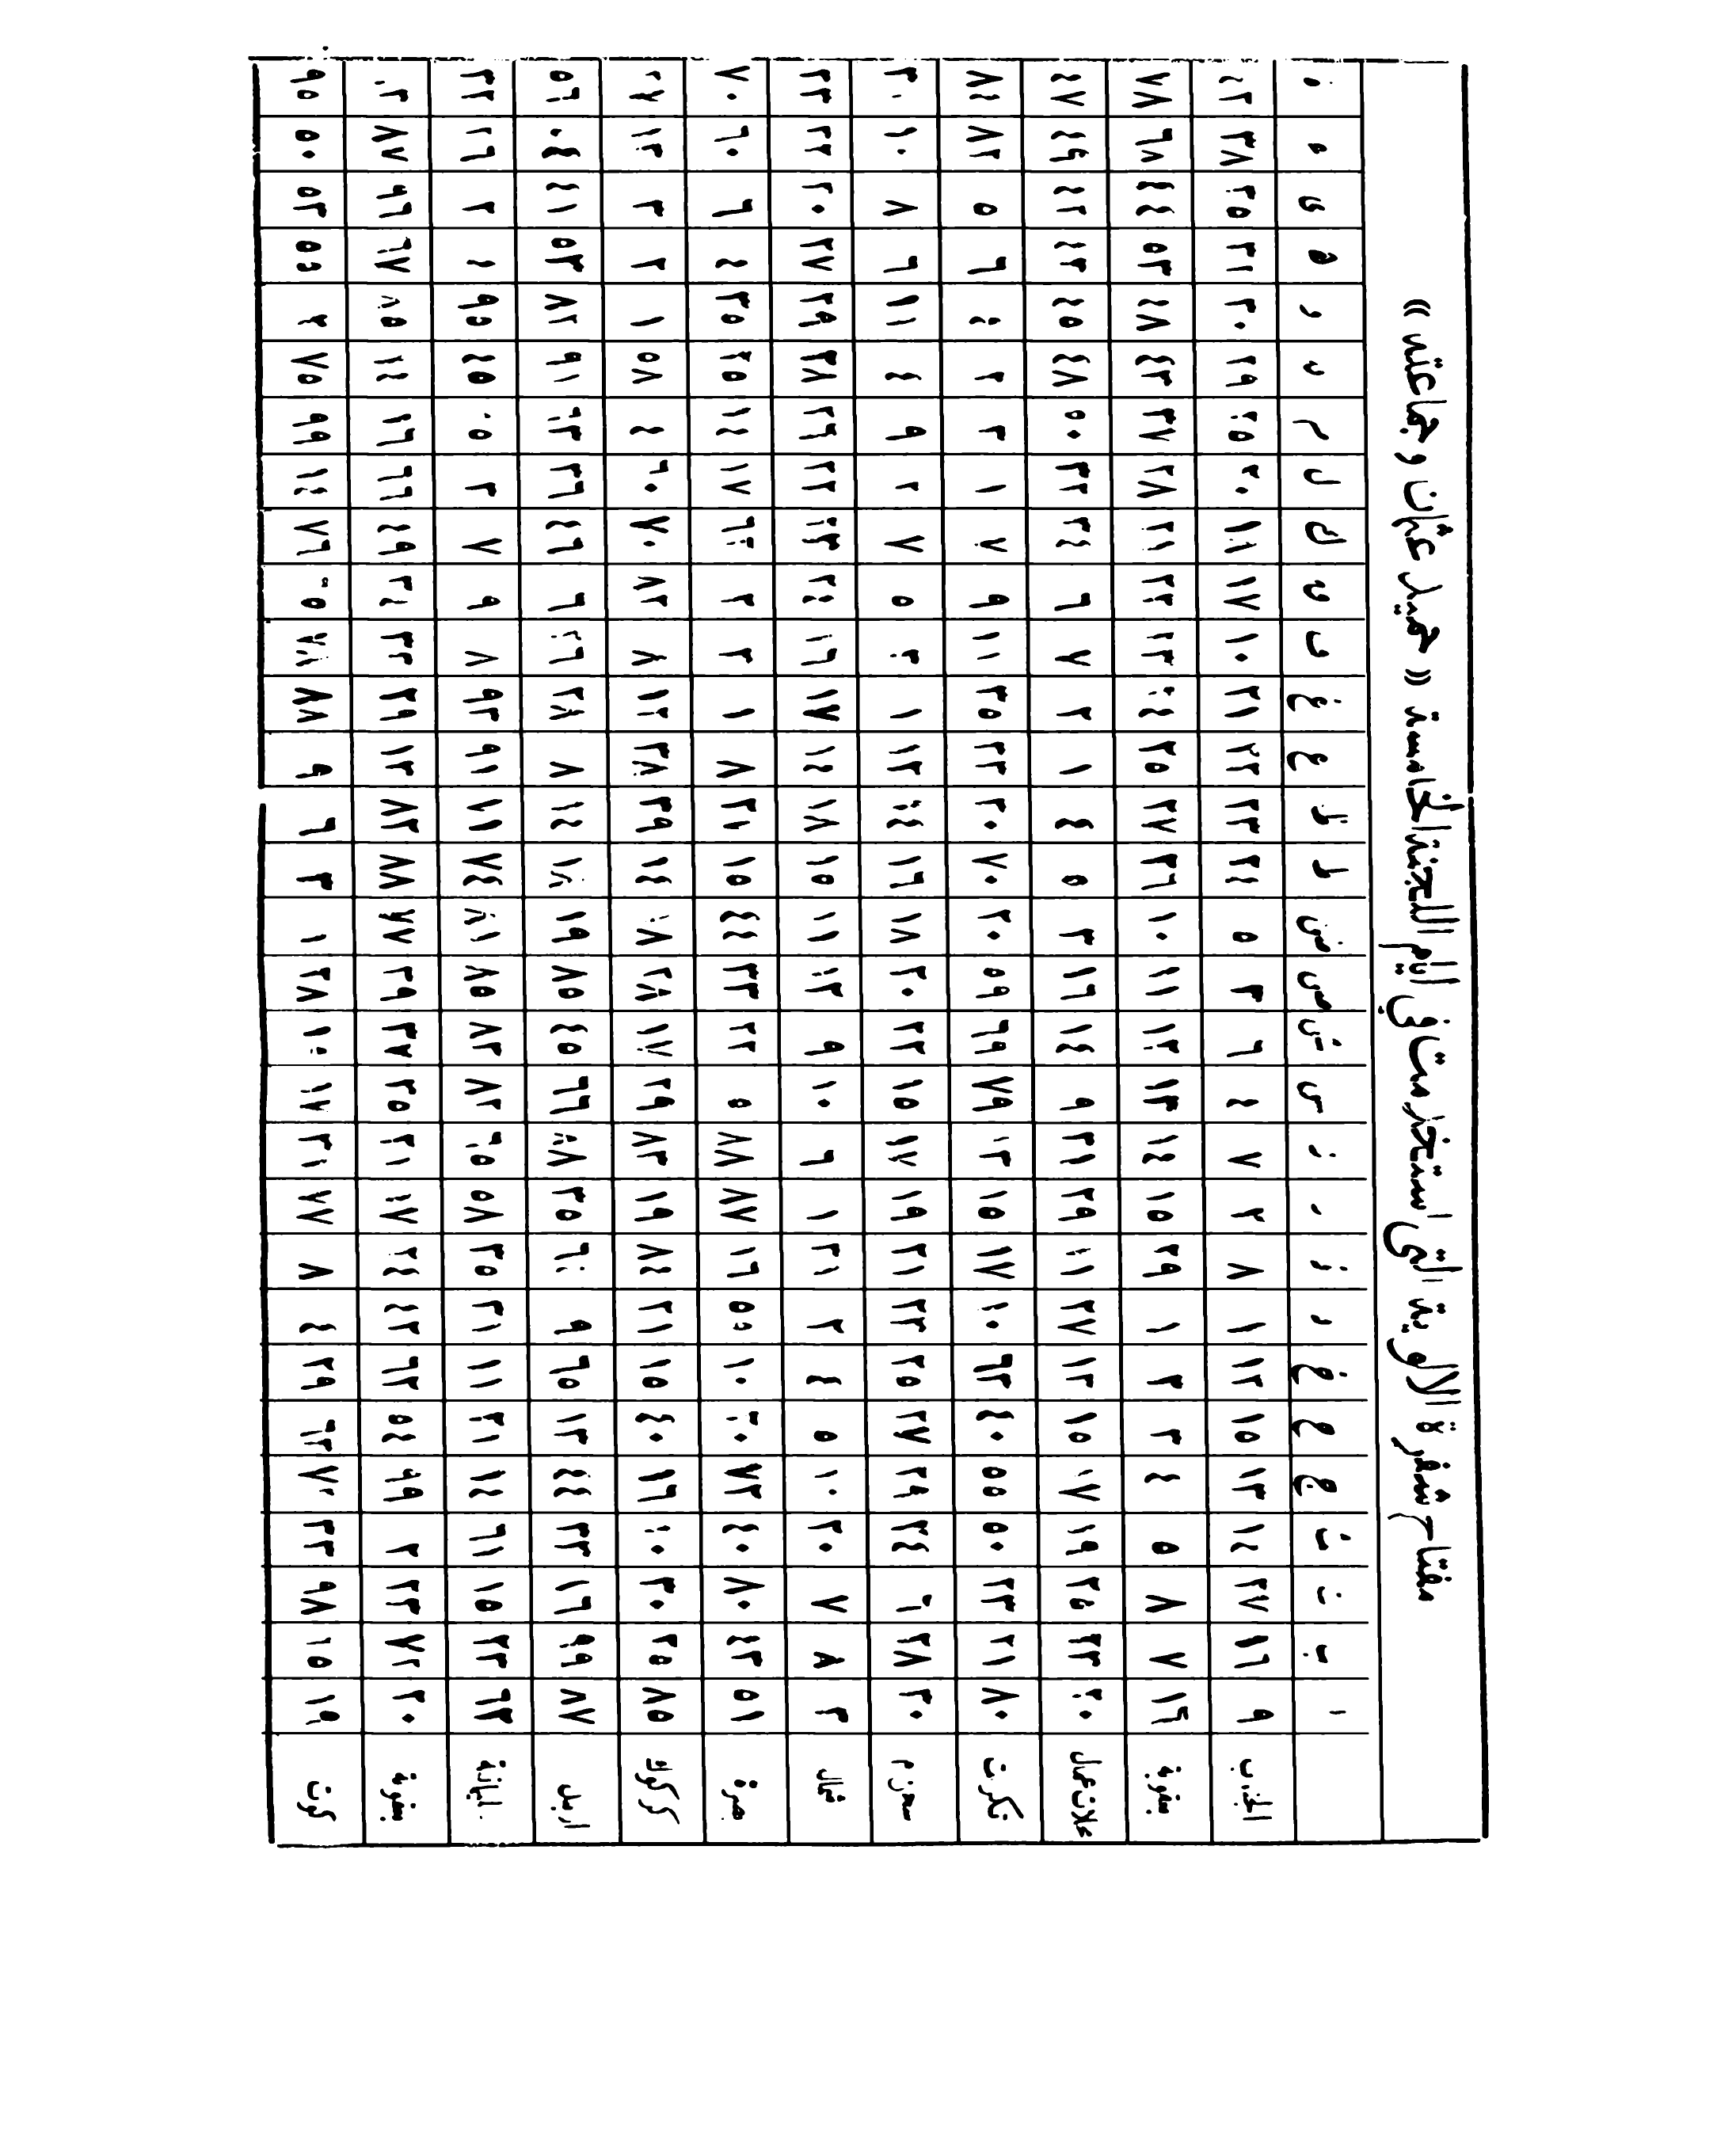 مفتاح شفرة الالوية التي استخدمت في ايام اللجنة الخامسة « حميد عثمان وجماعته »
ا ب ت ث ج ح خ د ذ ر ز س ش ص ض ط ظ ع غ ف ق ك ل م ن و ه ى ء
٩ ١٦ ٢٧ ١٤ ١٣ ١٥ ١٢ ١ ٨ ٢ ٧ ٤ ٦ ٣ ٥ ٢٤ ٢٣ ٢٢ ٢١ ١٠ ١٧ ١١ ٢٠ ٢٥ ٢٩ ٣٠ ٣١ ٣٥ ٣٨ ٤٢
بعقوبة ١٦ ٧ ٨ ٥ ٤ ٣ ٢ ١ ٢٩ ١٥ ١٤ ١٣ ١٢ ١١ ١٠ ٢٦ ٢٧ ٢٥ ٢٤ ٢٣ ٢٢ ٢١ ٢٨ ٣٧ ٤٣ ٤٨ ٥٣ ٤٤ ٦٨ ٧٨
عمال ٢٠ ٢٣ ٢٥ ١٩ ١٧ ١٥ ١٣ ٢٧ ١١ ٢٩ ٢١ ٩ ١٤ ١٦ ٣ ٥ ٤ ١ ٢ ٧ ٦ ٣٤ ٣٢ ٥٠ ٤٨ ٤٥ ٤٣ ٤٢ ٤٩ ٤٧
تكريت ٨٠ ٢١ ٢٣ ٥٠ ٥٥ ٤٠ ٦٣ ١٠ ١٧ ١٥ ١٣ ٧٩ ٦٩ ٥٩ ٢٠ ٧٠ ٣٠ ٣٣ ٣٥ ١١ ٩ ٧ ١ ٣ ٢ ٤ ٦ ٥ ٨٢ ٨٤
سجن م ٣٠ ٢٨ ٦ ٢٤ ٢٩ ٢٧ ٢٥ ٢٣ ٢١ ١٩ ١٧ ١٥ ٢٢ ٢٠ ١٨ ١٦ ١٤ ١٢ ١ ٣ ٥ ٧ ٢ ٩ ٤ ١١ ٦ ٨ ١٠ ٣٠
شمال ٣ ٨ ٧ ٢٠ ١٠ ٥ ٤ ٢ ٢١ ١ ٦ ١٠ ٩ ١٢ ١١ ١٥ ١٨ ١٤ ١٧ ١٦ ٢٤ ١٣ ٢٢ ٢٦ ٢٨ ٢٩ ٢٧ ٢٠ ٣٢ ٣٣
بصرة ٥١ ٤٣ ٨٠ ٤٠ ٧٣ ٣٠ ١٠ ٥٥ ١٦ ٨٧ ٨٨ ٥ ٢٢ ٣٣ ٤٤ ١٥ ٢١ ٨ ١ ٣ ٢ ١٧ ١٤ ٢٥ ٣٥ ٤ ٦ ٦٠ ٧٠
كركوك ٨٥ ٢٥ ٣٠ ١٠ ١٦ ٤٠ ١٥ ٢١ ٨٤ ١٩ ٨٣ ٢٩ ١٧ ٢٨ ١٨ ١٤ ٣٩ ٣٨ ١٢ ٨ ٨٢ ٧٠ ٦٠ ٤ ٥٨ ١ ٢ ٣ ١٣ ٢٧
اربيل ٨٧ ٩٩ ١٦ ٢٣ ٤٤ ١٣ ٦٥ ٩ ٦٠ ٣٥ ٨٨ ٦٦ ٤٥ ٨٥ ١٩ ١٨ ١٤ ٨ ٢٨ ٢٦ ٦ ٤٦ ٣٦ ٦٣ ٩١ ٨٢ ٥٣ ٤١ ٠٤ ٥٦
٦٣ ٢٣ ١٥ ٦١ ١٤ ٢١ ١١ ٣١ ٣٥ ٥٨ ٦٥ ٨٢ ٨٣ ٨٥ ٨١ ٧٤ ٧١ ٩١ ٩٣ ٨ ٩ ٧ ٣ ٥ ٤٥ ٩٥ ٤ ٢ ٢٦ ٣٢
بعقوبة ٢٠ ٧٢ ٢٣ ٢ ٩٩ ٥٤ ٦٢ ٤٢ ٢٤ ١٧ ٢١ ٢٥ ٣٧ ٢٩ ٧٧ ٨٨ ٨٢ ١٢ ٢٩ ٣٢ ٣٤ ٤٩ ٦٦ ١٦ ١٤ ٨٥ ٦٧ ٩٦ ٨٧ ٠٣
كوت ١٩ ١٥ ٩٨ ٣٣ ٧٠ ٦٢ ٢٩ ٤ ٨ ٧٧ ٣١ ١٧ ١٠ ٢٨ ١ ٣ ٦ ٩ ٨٨ ٧٦ ١٤ ٩٩ ٧٥ ٢ ٥٥ ٥٣ ٥٠ ٩٥